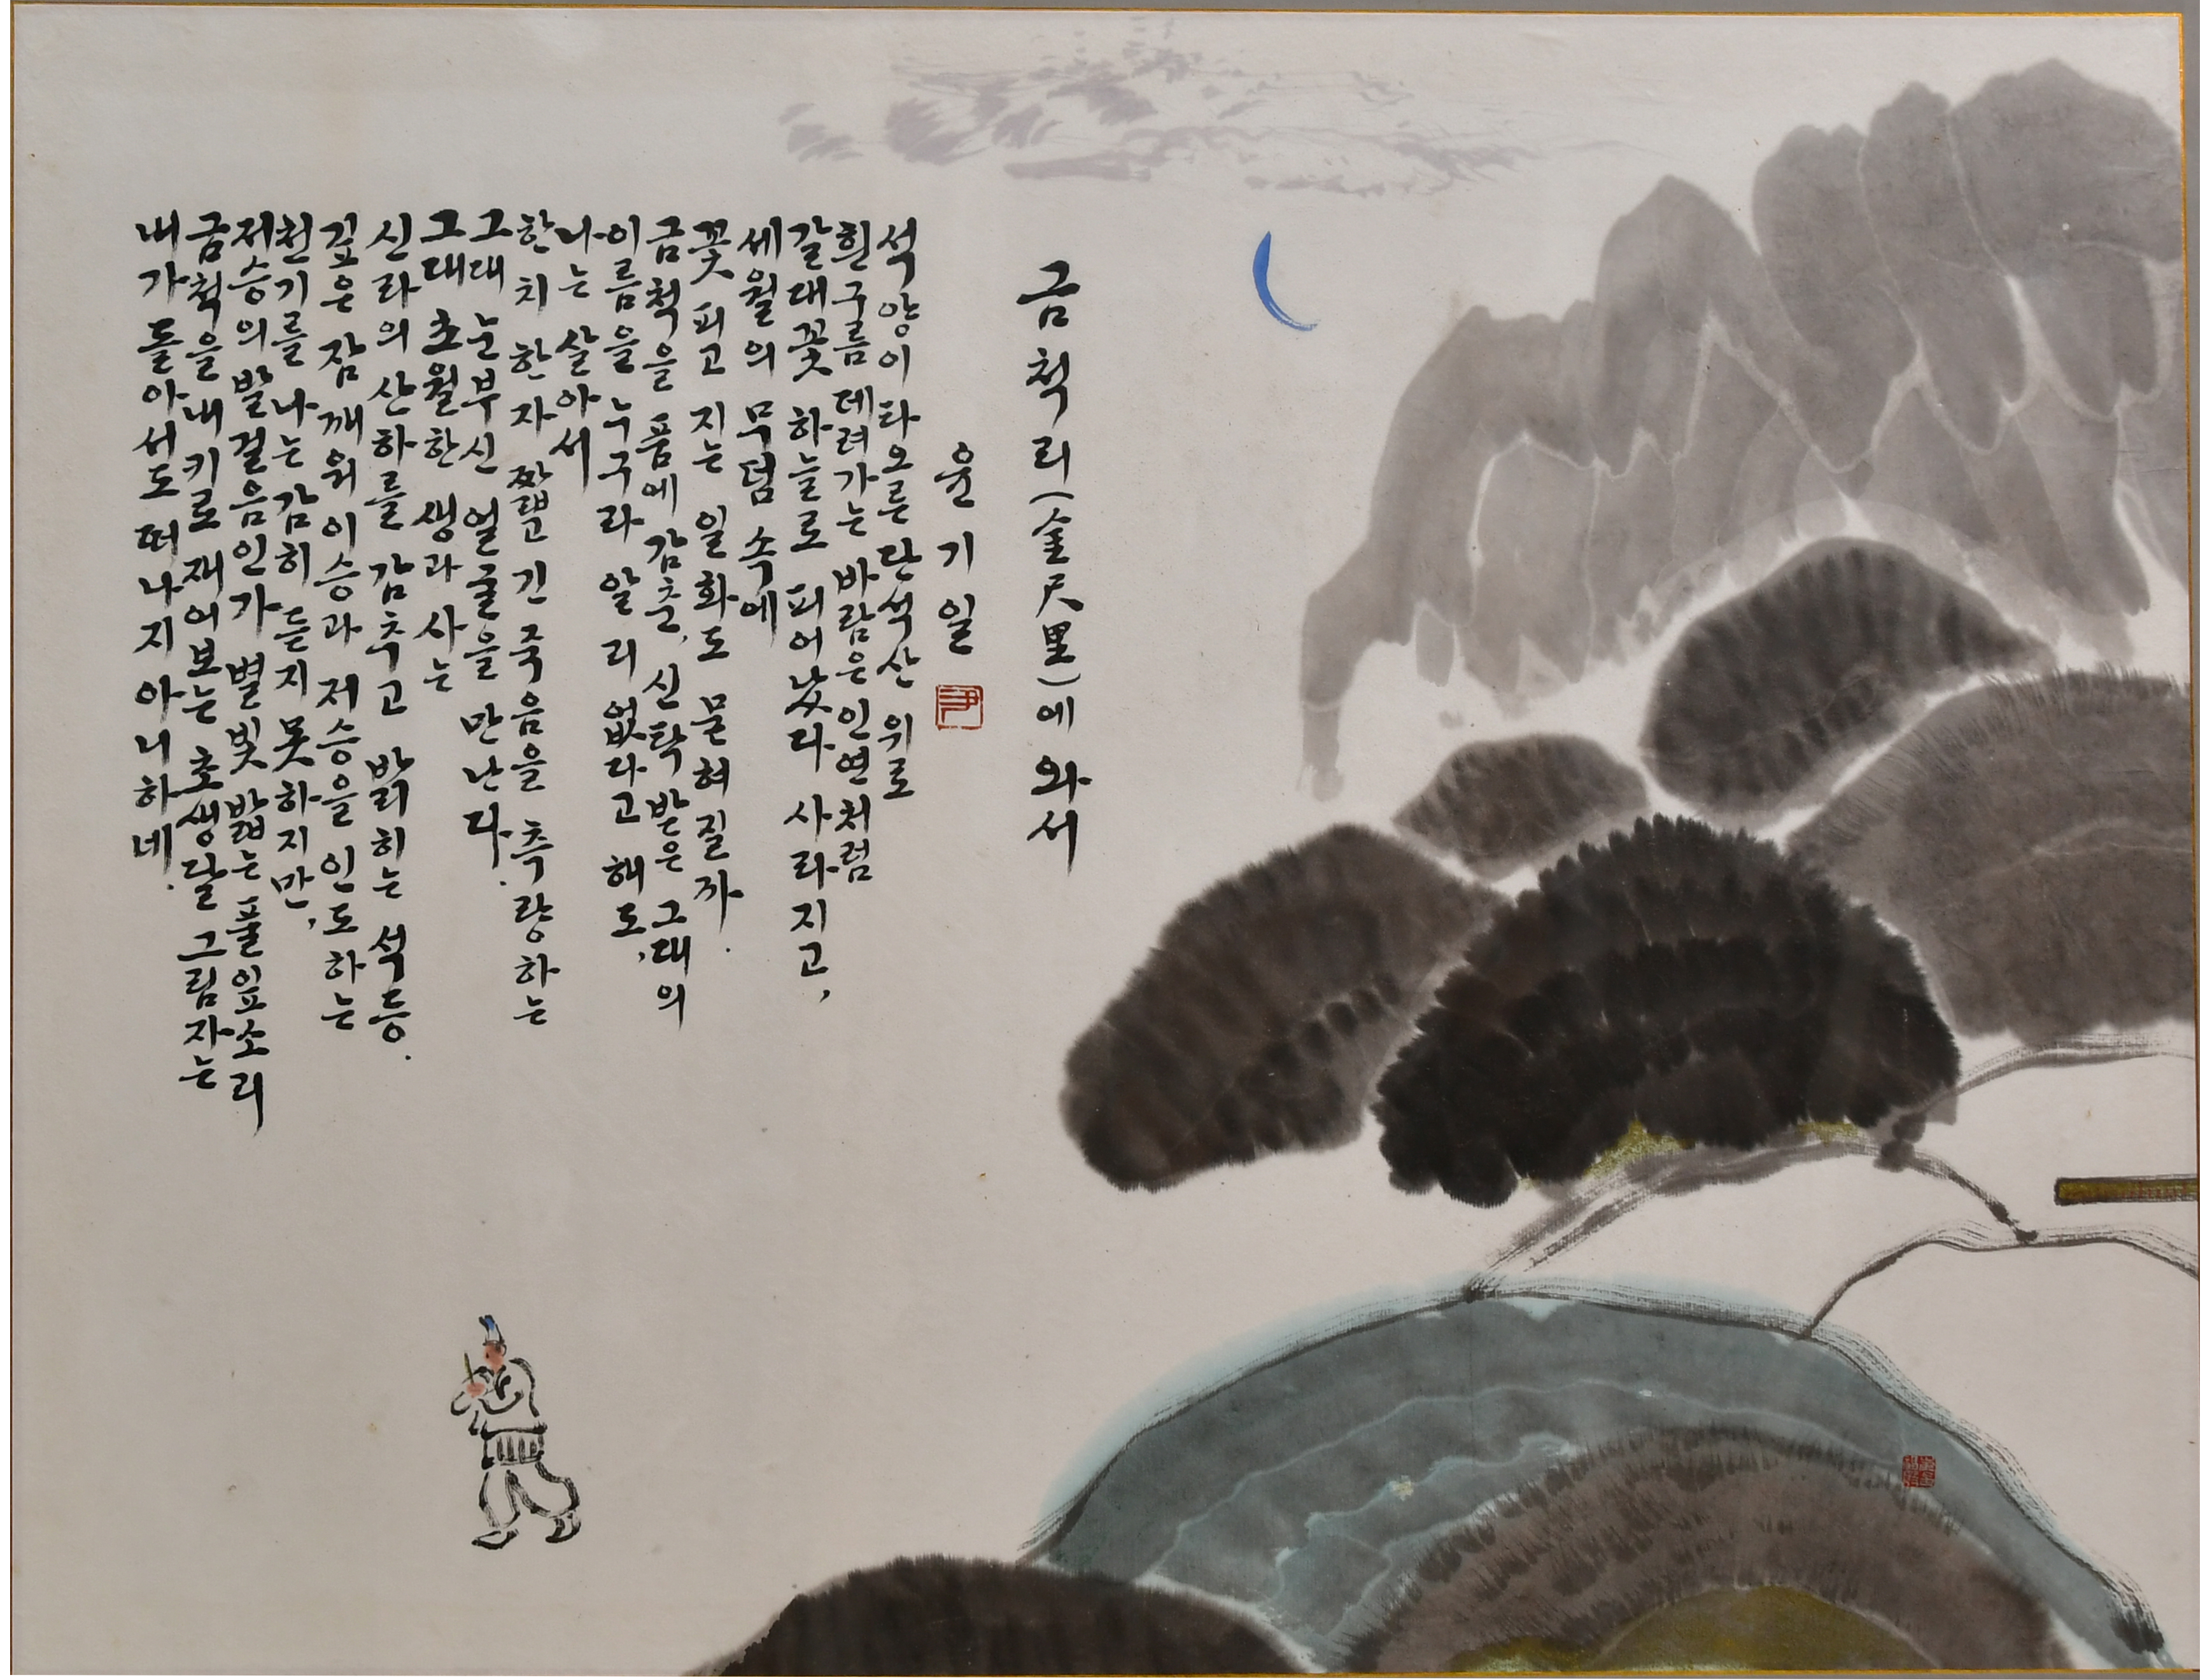 금척리(金尺里)에 와서
윤기일
석양이 타오른 단석산 위로
흰구름 데려가는 바람은 인연처럼
갈대꽃 하늘로 피어났다 사라지고,
세월의 무덤 속에
꽃 피고 지는 일화도 묻혀질까.
금척을 품에 감춘, 신탁 받은 그대의
이름을 누구라 알리 없다고 해도,
나는 살아서
한 치 한 자 짧고 긴 죽음을 측량하는
그대 눈부신 얼굴을 만난다.
그대 초월한 생과 사는
신라의 산하를 감추고 밝히는 석등.
깊은 잠 깨워 이승과 저승을 인도하는
천기를 나는 감히 듣지 못하지만,
저승의 발걸음인가 별빛 밟는 풀잎소리
금척을 내키로 재어보는 초생달 그림자는
내가 돌아서도 떠나지 아니하네.